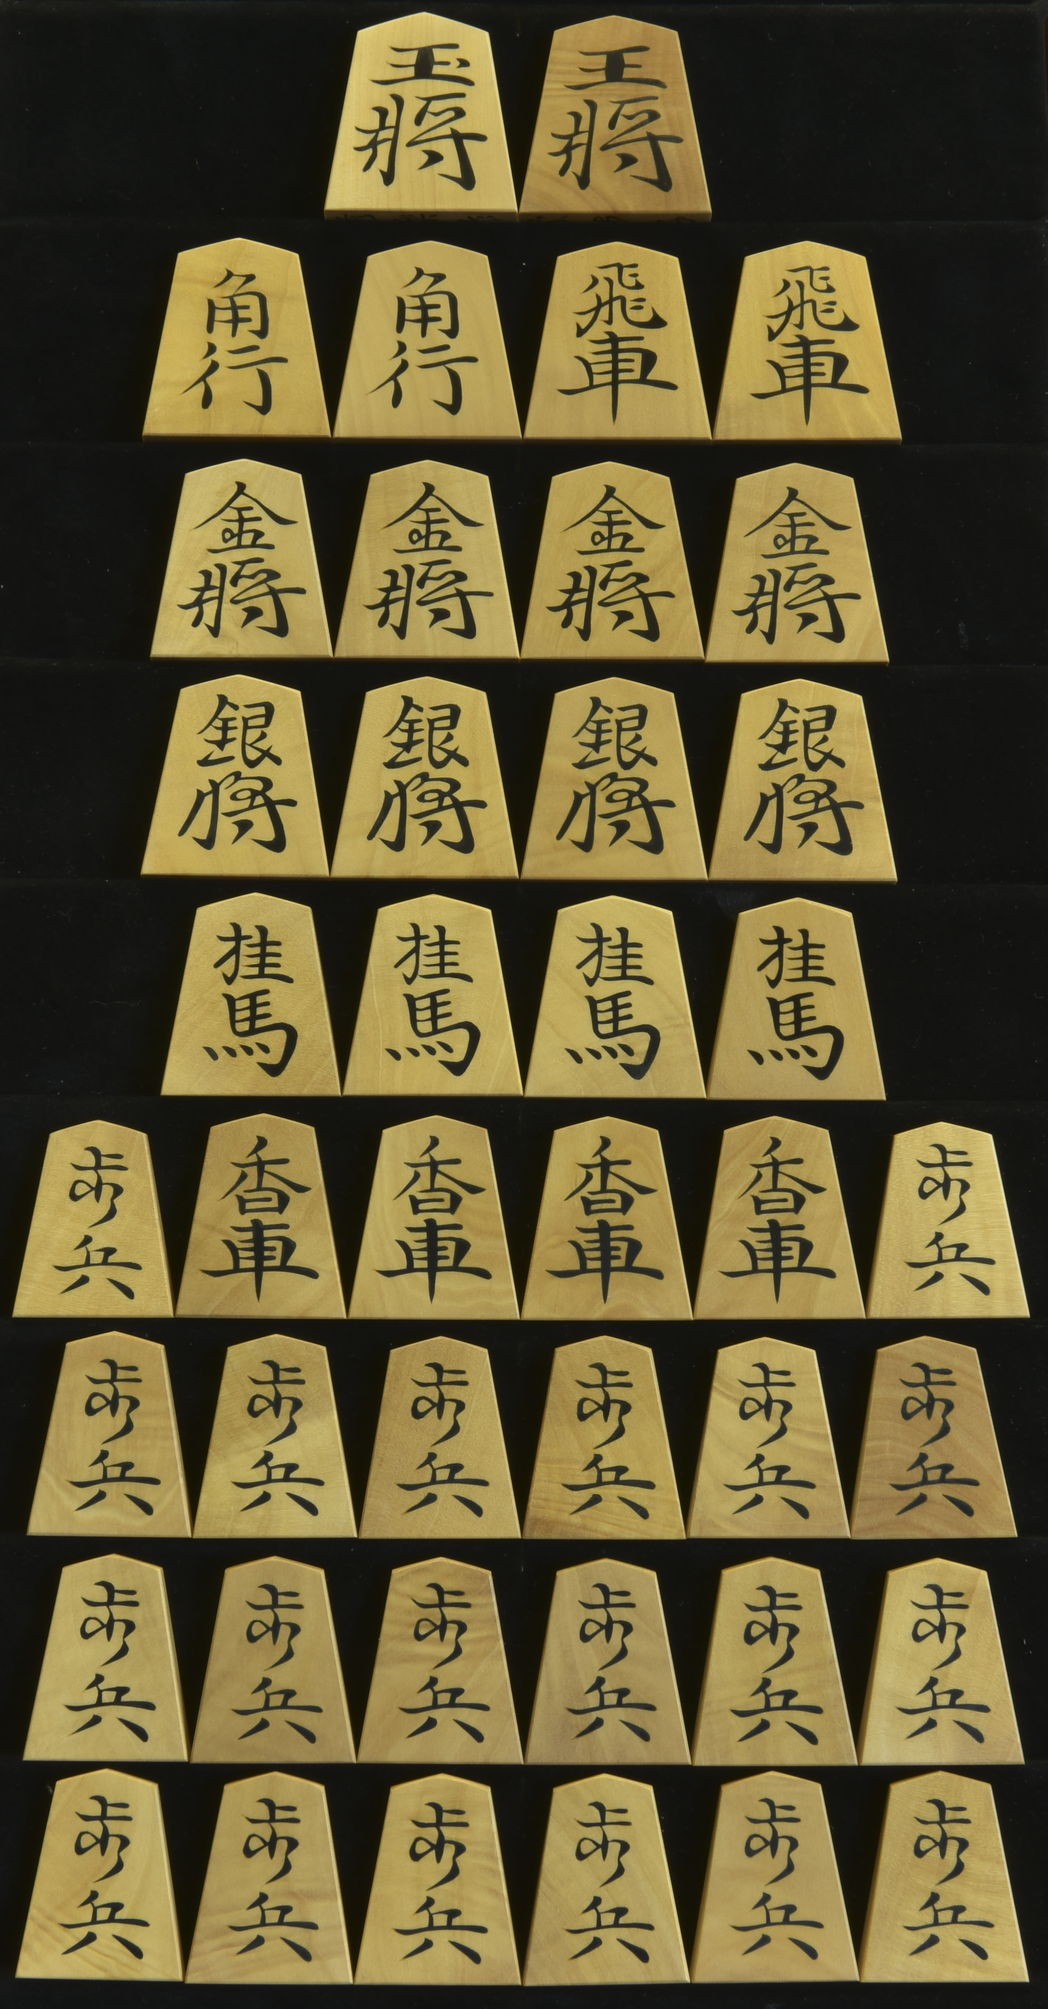 玉将 王将
角行 角行 飛車 飛車
金将 金将 金将 金将
銀将 銀将 銀将 銀将
桂馬 桂馬 桂馬 桂馬
歩兵 香車 香車 香車 香車 歩兵
歩兵 歩兵 歩兵 歩兵 歩兵 歩兵
歩兵 歩兵 歩兵 歩兵 歩兵 歩兵
歩兵 歩兵 歩兵 歩兵 歩兵 歩兵